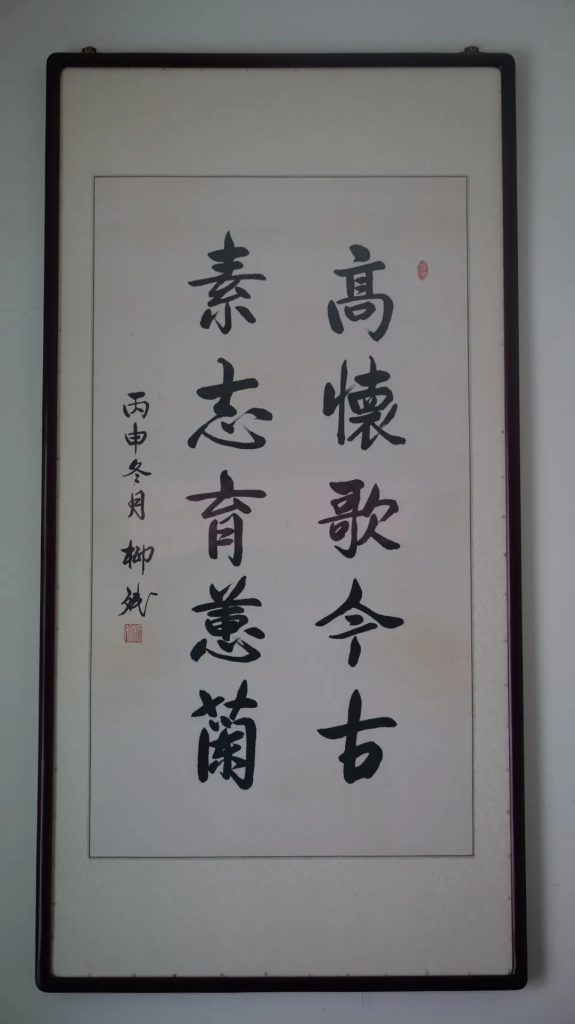 高懷歌今古
素志育蕙蘭
丙申冬月 柳斌